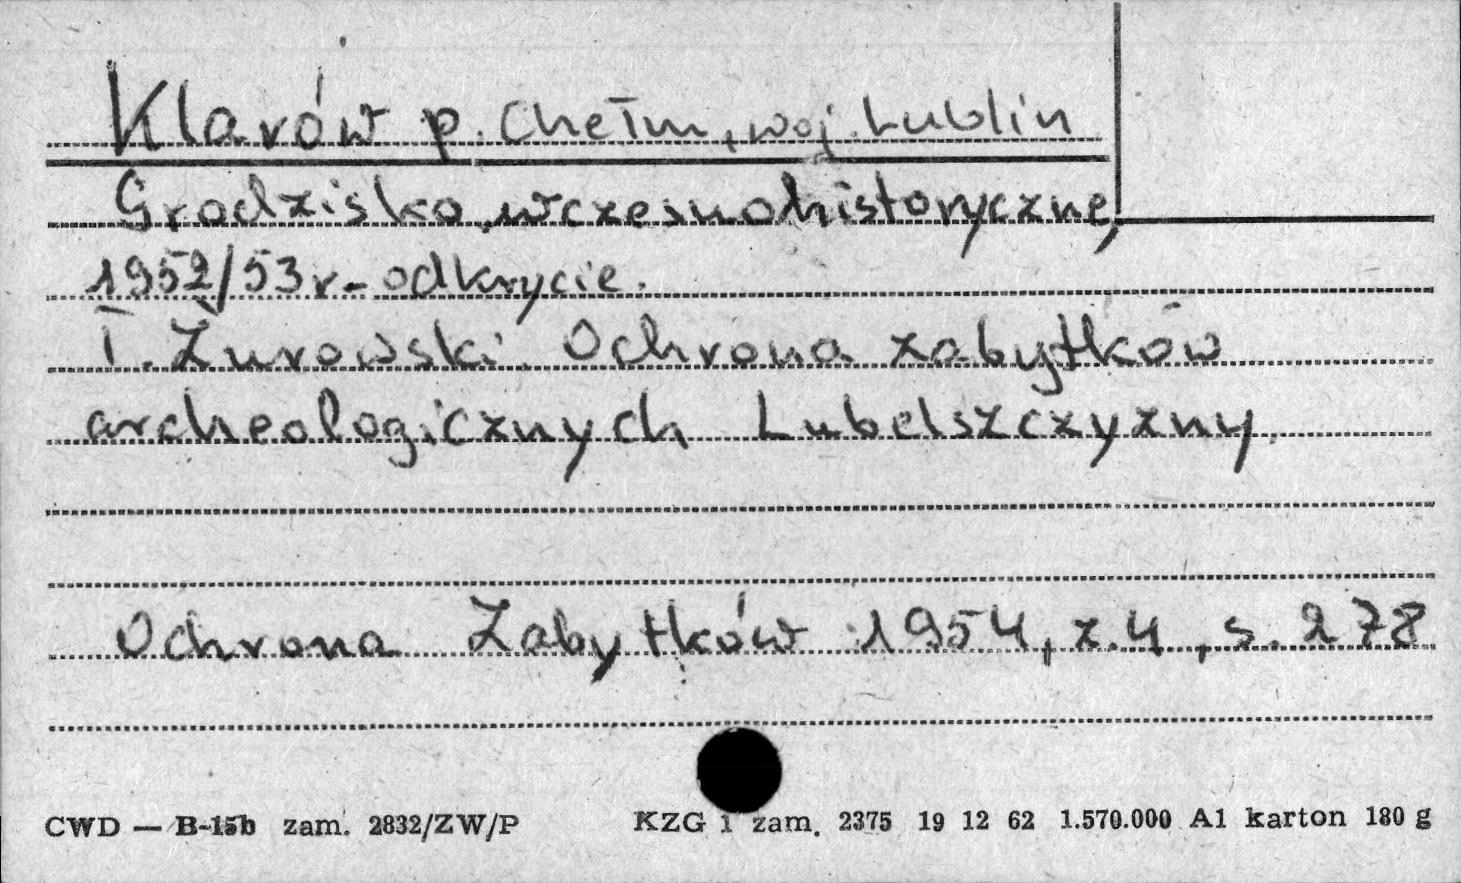 Klarów p. Chełm, woj. Lublin
Grodzisko wczesnohistoryczne,
1952/53 r - odkrycie.
T. Żurowski. Ochrona zabytków
archeologicznych Lubelszczyzny.
Ochrona Zabytków 1954, z. 4, s. 278
CWD — B-15b zam. 2832/ZW/P KZG 1 zam. 2375 19 12 62 1.570.000 A1 karton 180 g